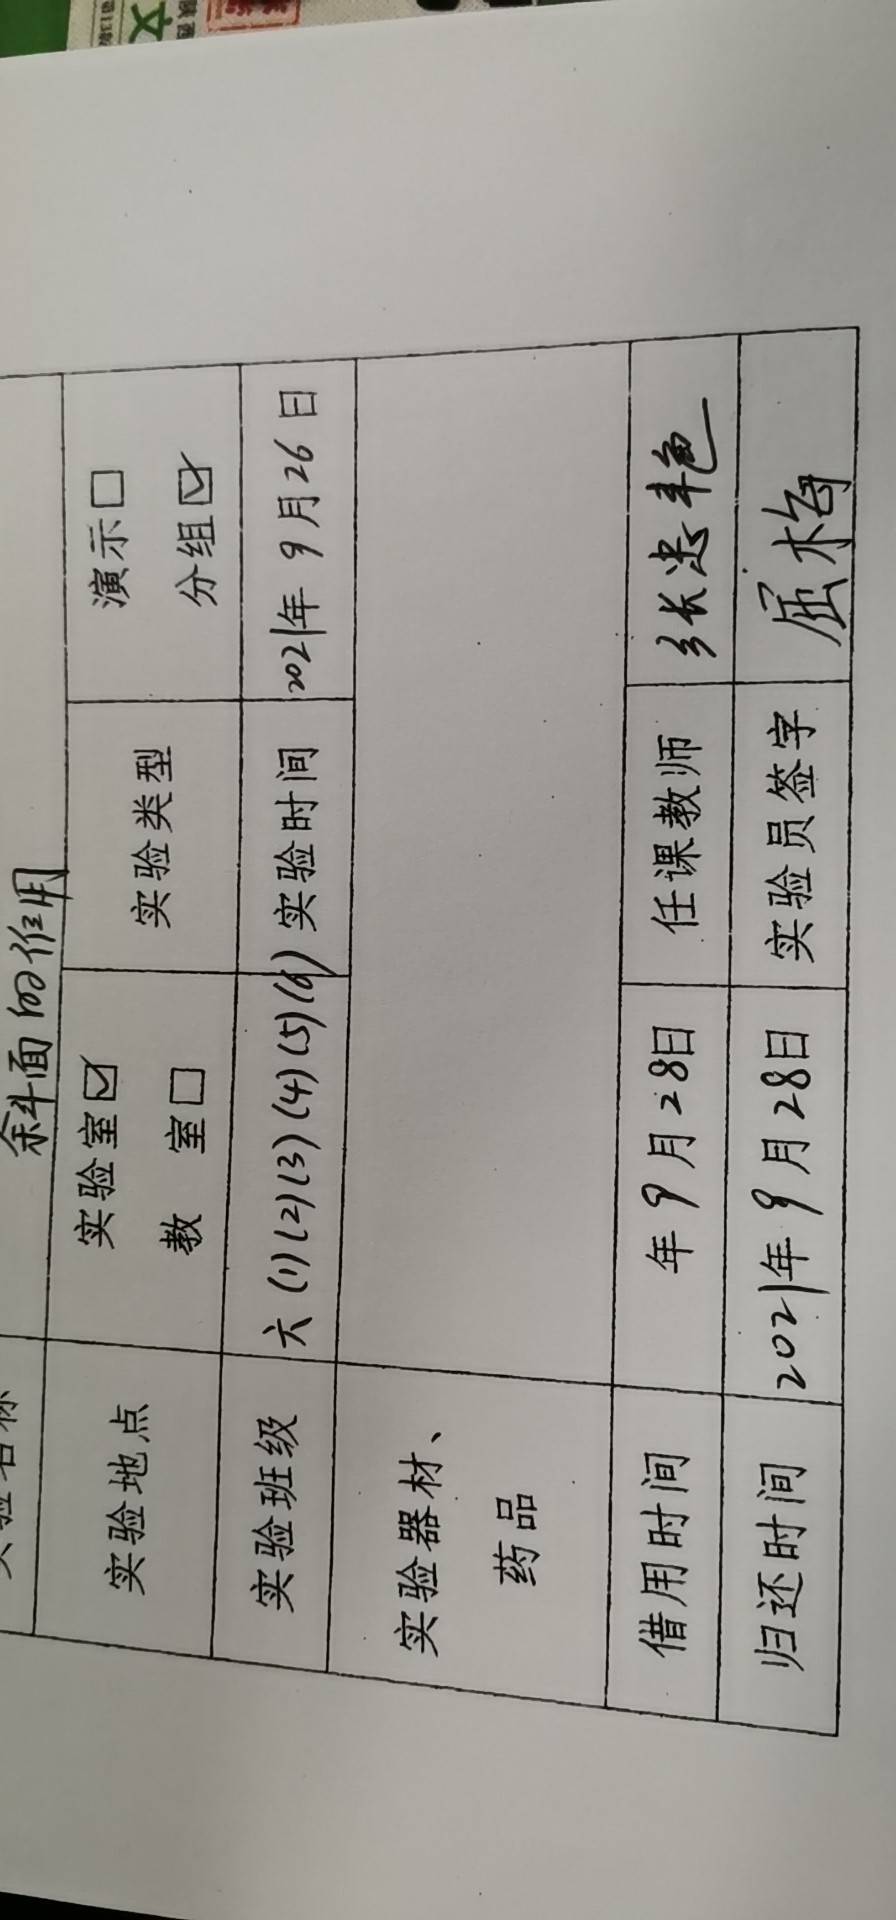 斜面的作用
实验地点
实验室☑
教 室□
实验类型
演示□
分组☑
实验班级
六(1)(2)(3)(4)(5)(6)
实验时间
2021年 9月26日
实验器材、
药品
借用时间
年9月28日
任课教师
归还时间
2021年9月28日
实验员签字
屈梅
文